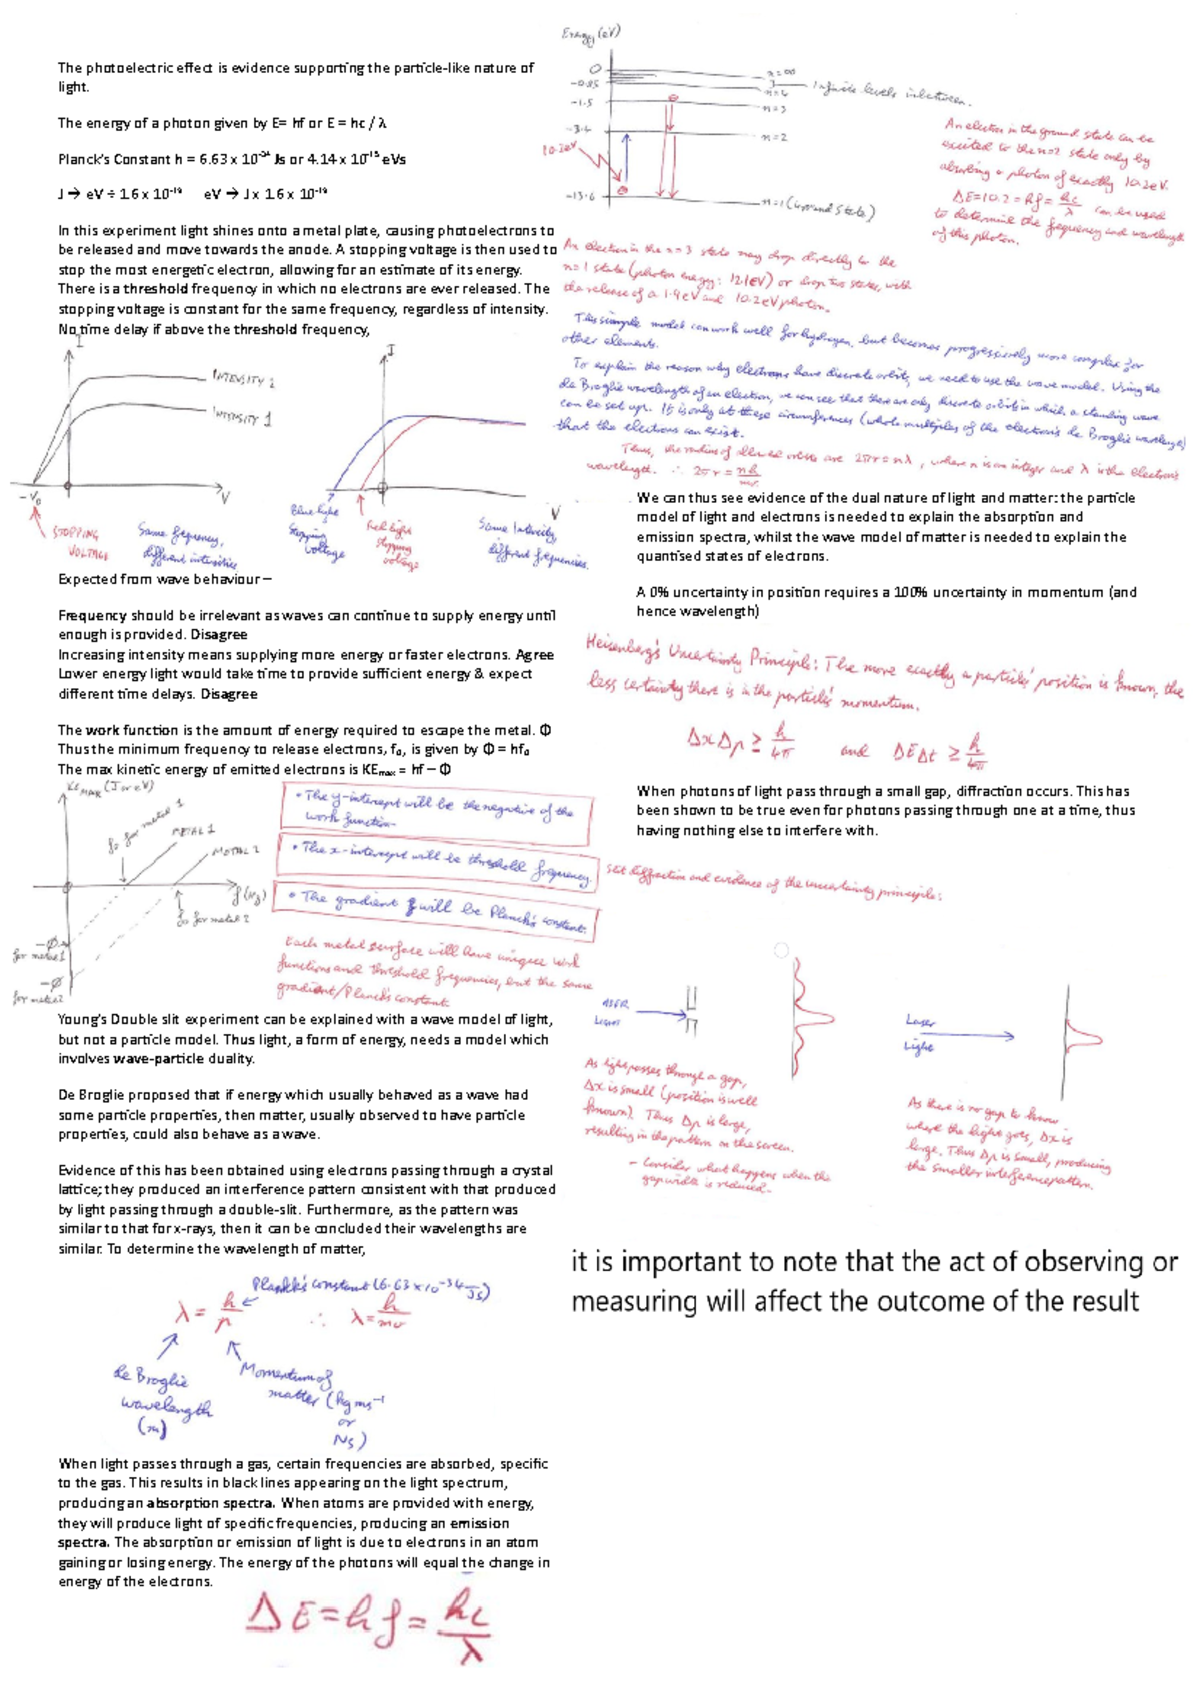 The photoelectric effect is evidence supporting the particle-like nature of
light.
The energy of a photon given by E= hf or E = hc / λ
Planck's Constant h = 6.63 x 10⁻³⁴ Js or 4.14 x 10⁻¹⁵ eVs
J → eV ÷ 1.6 x 10⁻¹⁹ eV → J x 1.6 x 10⁻¹⁹
In this experiment light shines onto a metal plate, causing photoelectrons to
be released and move towards the anode. A stopping voltage is then used to
stop the most energetic electron, allowing for an estimate of its energy.
There is a threshold frequency in which no electrons are ever released. The
stopping voltage is constant for the same frequency, regardless of intensity.
No time delay if above the threshold frequency,
I
INTENSITY 2
INTENSITY 1
-V₀
V
STOPPING
VOLTAGE
Same frequency,
different intensities
I
Blue light
stopping
voltage
Red light
stopping
voltage
V
Same Intensity,
different frequencies.
Expected from wave behaviour –
Frequency should be irrelevant as waves can continue to supply energy until
enough is provided. Disagree
Increasing intensity means supplying more energy or faster electrons. Agree
Lower energy light would take time to provide sufficient energy & expect
different time delays. Disagree
The work function is the amount of energy required to escape the metal. Φ
Thus the minimum frequency to release electrons, f₀, is given by Φ = hf₀
The max kinetic energy of emitted electrons is KEₘₐₓ = hf – Φ
KE MAX (J or eV)
f₀ for metal 1
METAL 1
METAL 2
f (Hz)
f₀ for metal 2
-Φ
for metal 1
-Φ
for metal 2
• The y-intercept will be the negative of the
work function
• The x-intercept will be threshold frequency.
• The gradient will be Planck's constant.
Each metal surface will have unique work
functions and threshold frequencies, but the same
gradient/Planck's constant.
Young's Double slit experiment can be explained with a wave model of light,
but not a particle model. Thus light, a form of energy, needs a model which
involves wave-particle duality.
De Broglie proposed that if energy which usually behaved as a wave had
some particle properties, then matter, usually observed to have particle
properties, could also behave as a wave.
Evidence of this has been obtained using electrons passing through a crystal
lattice; they produced an interference pattern consistent with that produced
by light passing through a double-slit. Furthermore, as the pattern was
similar to that for x-rays, then it can be concluded their wavelengths are
similar. To determine the wavelength of matter,
Planck's constant (6.63x10⁻³⁴ Js)
λ = h/p ∴ λ = h/mv
de Broglie
wavelength
(m)
Momentum of
matter (kgms⁻¹
or
Ns)
When light passes through a gas, certain frequencies are absorbed, specific
to the gas. This results in black lines appearing on the light spectrum,
producing an absorption spectra. When atoms are provided with energy,
they will produce light of specific frequencies, producing an emission
spectra. The absorption or emission of light is due to electrons in an atom
gaining or losing energy. The energy of the photons will equal the change in
energy of the electrons.
ΔE = hf = hc/λ
Energy (eV)
0
-0.85
-1.5
-3.4
-13.6
10.2eV
n=∞
n=4
n=3
n=2
n=1 (Ground State)
Infinite levels inbetween.
An electron in the ground state can be
excited to the n=2 state only by
absorbing a photon of exactly 10.2eV.
ΔE=10.2=hf=hc/λ can be used
to determine the frequency and wavelength
of this photon.
An electron in the n=3 state may drop directly to the
n=1 state (photon energy: 12.1eV) or drop two states, with
the release of a 1.9eV and 10.2eV photon.
This simple model can work well for hydrogen, but becomes progressively more complex for
other elements.
To explain the reason why electrons have discrete orbits, we need to use the wave model. Using the
de Broglie wavelength of an electron, we can see that there are only discrete orbits in which a standing wave
can be set up. It is only at these circumferences (whole multiples of the electron's de Broglie wavelength)
that the electrons can exist.
Thus, the radius of these orbits are 2πr=nλ, where n is an integer and λ is the electron's
wavelength. ∴ 2πr = nh/mv
We can thus see evidence of the dual nature of light and matter: the particle
model of light and electrons is needed to explain the absorption and
emission spectra, whilst the wave model of matter is needed to explain the
quantised states of electrons.
A 0% uncertainty in position requires a 100% uncertainty in momentum (and
hence wavelength)
Heisenberg's Uncertainty Principle: The more exactly a particle's position is known, the
less certainty there is in the particle's momentum.
ΔxΔp ≥ h/4π and ΔEΔt ≥ h/4π
When photons of light pass through a small gap, diffraction occurs. This has
been shown to be true even for photons passing through one at a time, thus
having nothing else to interfere with.
Slit diffraction and evidence of the uncertainty principle:
LASER
LIGHT
As light passes through a gap,
Δx is small (position is well
known). Thus Δp is large,
resulting in the pattern on the screen.
- Consider what happens when the
gap width is reduced.
Laser
Light
As there is no gap to know
where the light goes, Δx is
large. Thus Δp is small, producing
the smaller interference pattern.
it is important to note that the act of observing or
measuring will affect the outcome of the result